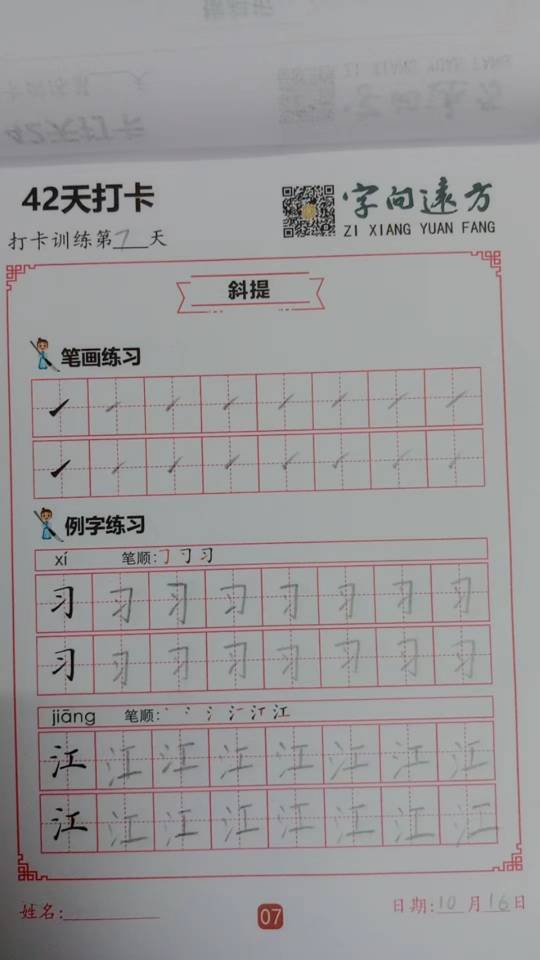 42天打卡
字向远方
ZI XIANG YUAN FANG
打卡训练第7天
斜提
笔画练习
例字练习
xí 笔顺:
习 习 习 习 习 习 习 习
习 习 习 习 习 习 习 习
jiāng 笔顺:
江 江 江 江 江 江 江 江
江 江 江 江 江 江 江 江
姓名:
07
日期:10月16日